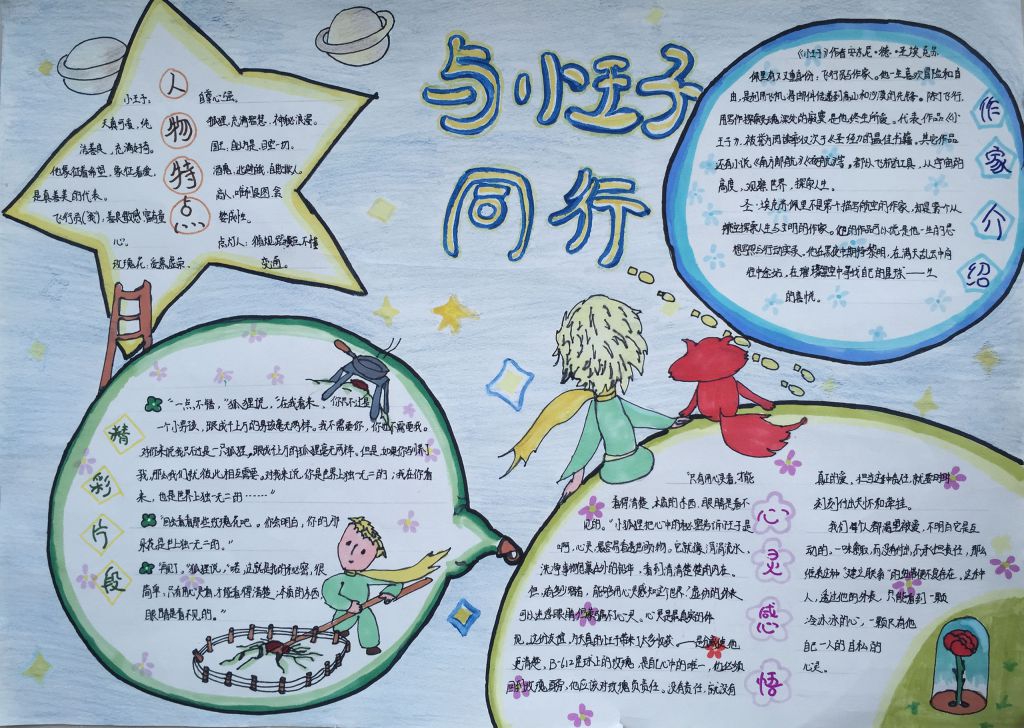 与小王子
同行
人物特点
小王子：
天真可爱，纯
洁善良，充满好奇。
他象征着希望，象征着爱，
是真善美的代表。
飞行员(我)：善良敏感富有童
心。
玫瑰花：爱慕虚荣、
自尊心强。
狐狸：充满智慧、神秘浪漫。
国王：自以是、目空一切。
酒鬼：
商人：唯利是图
点灯人：循规蹈矩、不懂
变通。
作家介绍
《小王子》作者安东尼·德·圣-埃克苏
佩里有双重身份：飞行员与作家。他一生喜欢冒险和自
由，是利用飞机将邮件传递到高山和沙漠的先锋。除了飞行，
用写作探索灵魂深处的寂寞是他终生所爱。代表作品《小
王子》，被誉为阅读率仅次于《圣经》的最佳书籍。其它作品
还有小说《南方邮航》《夜航》等。都以飞行为工具，从宇宙的
高度，观察世界，探索人生。
圣·埃克苏佩里不是第一个描写航空的作家，却是第一个从
航空探索人生与文明的作家。他的作品可以说是他一生的思
想写照与行动实录。他在黑夜中期待黎明，在满天乱云中向
往中途站，在璀璨星空中寻找自己的星球——生
的喜悦。
精彩片段
“一点不错，”狐狸说，“在我看来，你只不过是
一个小男孩，跟成千上万的男孩毫无两样。我不需要你，你也不需要我。
对你来说我只不过是一只狐狸，跟成千上万的狐狸毫无两样。但是，如果你驯养了
我，那么我们就彼此相互需要。对我来说，你是世界上独一无二的；我在你看
来，也是世界上独一无二的……”
“回去看看那些玫瑰花吧。你会明白，你的那
朵花是世上独一无二的。”
“再见，”狐狸说，“喏，这就是我的秘密，很
简单，只有用心灵看，才能看得清楚，本质的东西
眼睛是看不见的。”
心灵感悟
“只有用心灵看，才能
看得清楚，本质的东西，眼睛是看不
见的。”小狐狸把心中的秘密告诉小王子是
啊，心灵，最容易看透世间万物。它就像涓涓流水，
洗净事物覆盖外的粗粹，看到清清楚楚的内在。
但，有多少双眼，能够用心灵感知这个世界？虚伪的外表
可以迷惑眼睛，但欺骗不了心灵。心灵是最真实的体
现。这份友谊，为天真的小王子带来了太多收获。——是狐狸使他
更清楚，B-612星球上的玫瑰，是自己心中的唯一，他必须
回到玫瑰旁，他应该对玫瑰负责任。没有责任，就没有
真的爱，担当这种责任，就要时时
刻刻付出关怀和牵挂。
我们每个人都渴望被爱，不明白它是互
动的。一味索取，而没有付出，不承担责任，那么
他来这种“建立联系”的幻想便不复存在。这种
人，透过他的外表，只能看到一颗
冷冰冰的心，一颗只有他
自己一人的自私的
心灵。